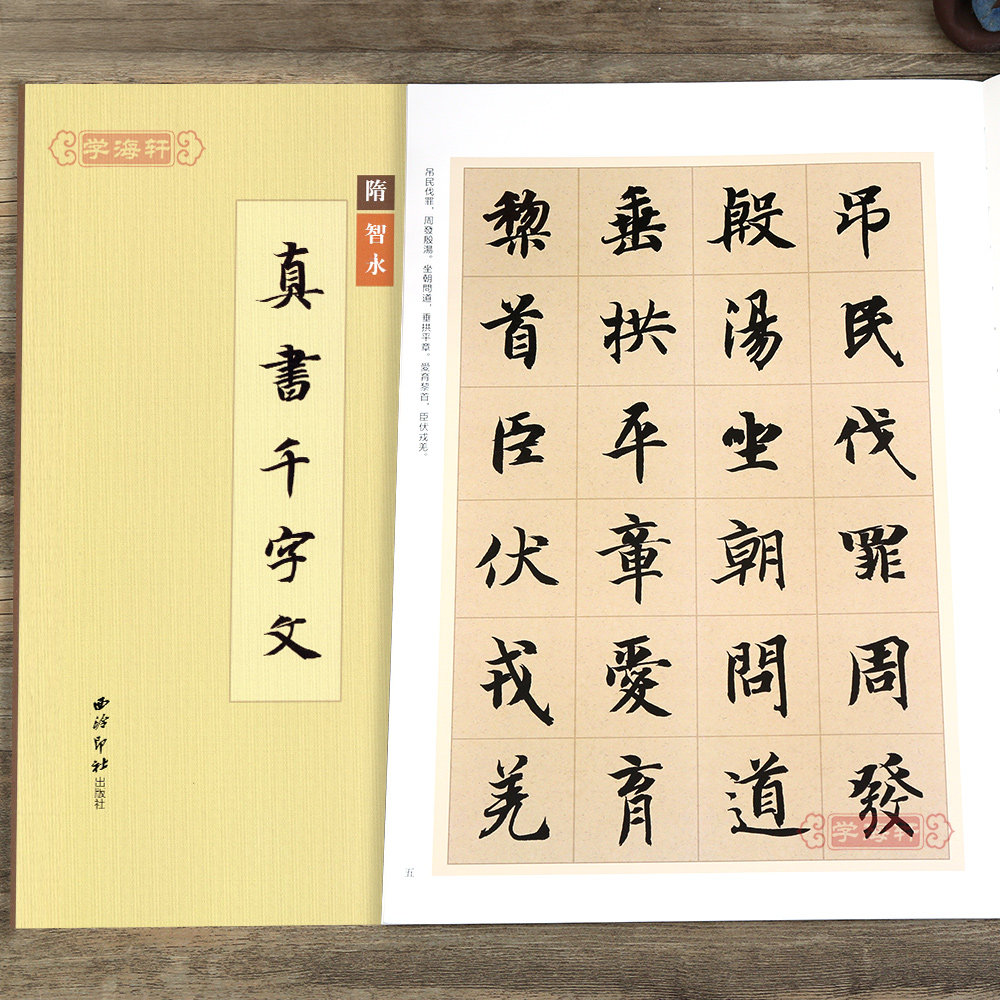 学海轩
隋
智永
真書千字文
西泠印社出版社
吊民伐罪，周發殷湯。坐朝問道，垂拱平章。愛育黎首，臣伏戎羌。
吊民伐罪周發
殷湯坐朝問道
垂拱平章愛育
黎首臣伏戎羌
学海轩
五